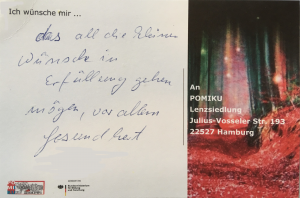 Ich wünsche mir ...
das all die kleinen
wünsche in
Erfüllung gehen
mögen, vor allem
gesundheit
An
POMIKU
Lenzsiedlung
Julius-Vosseler Str. 193
22527 Hamburg